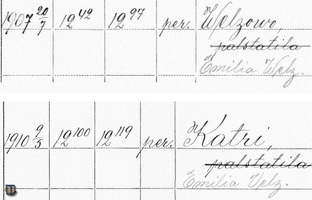 1907 20/7 12 42 12 97 per. Welzowo,
palstatila
Emilia Welz.
1910 9/5 12 100 12 119 per. Katri,
palstatila
Emilia Velz.